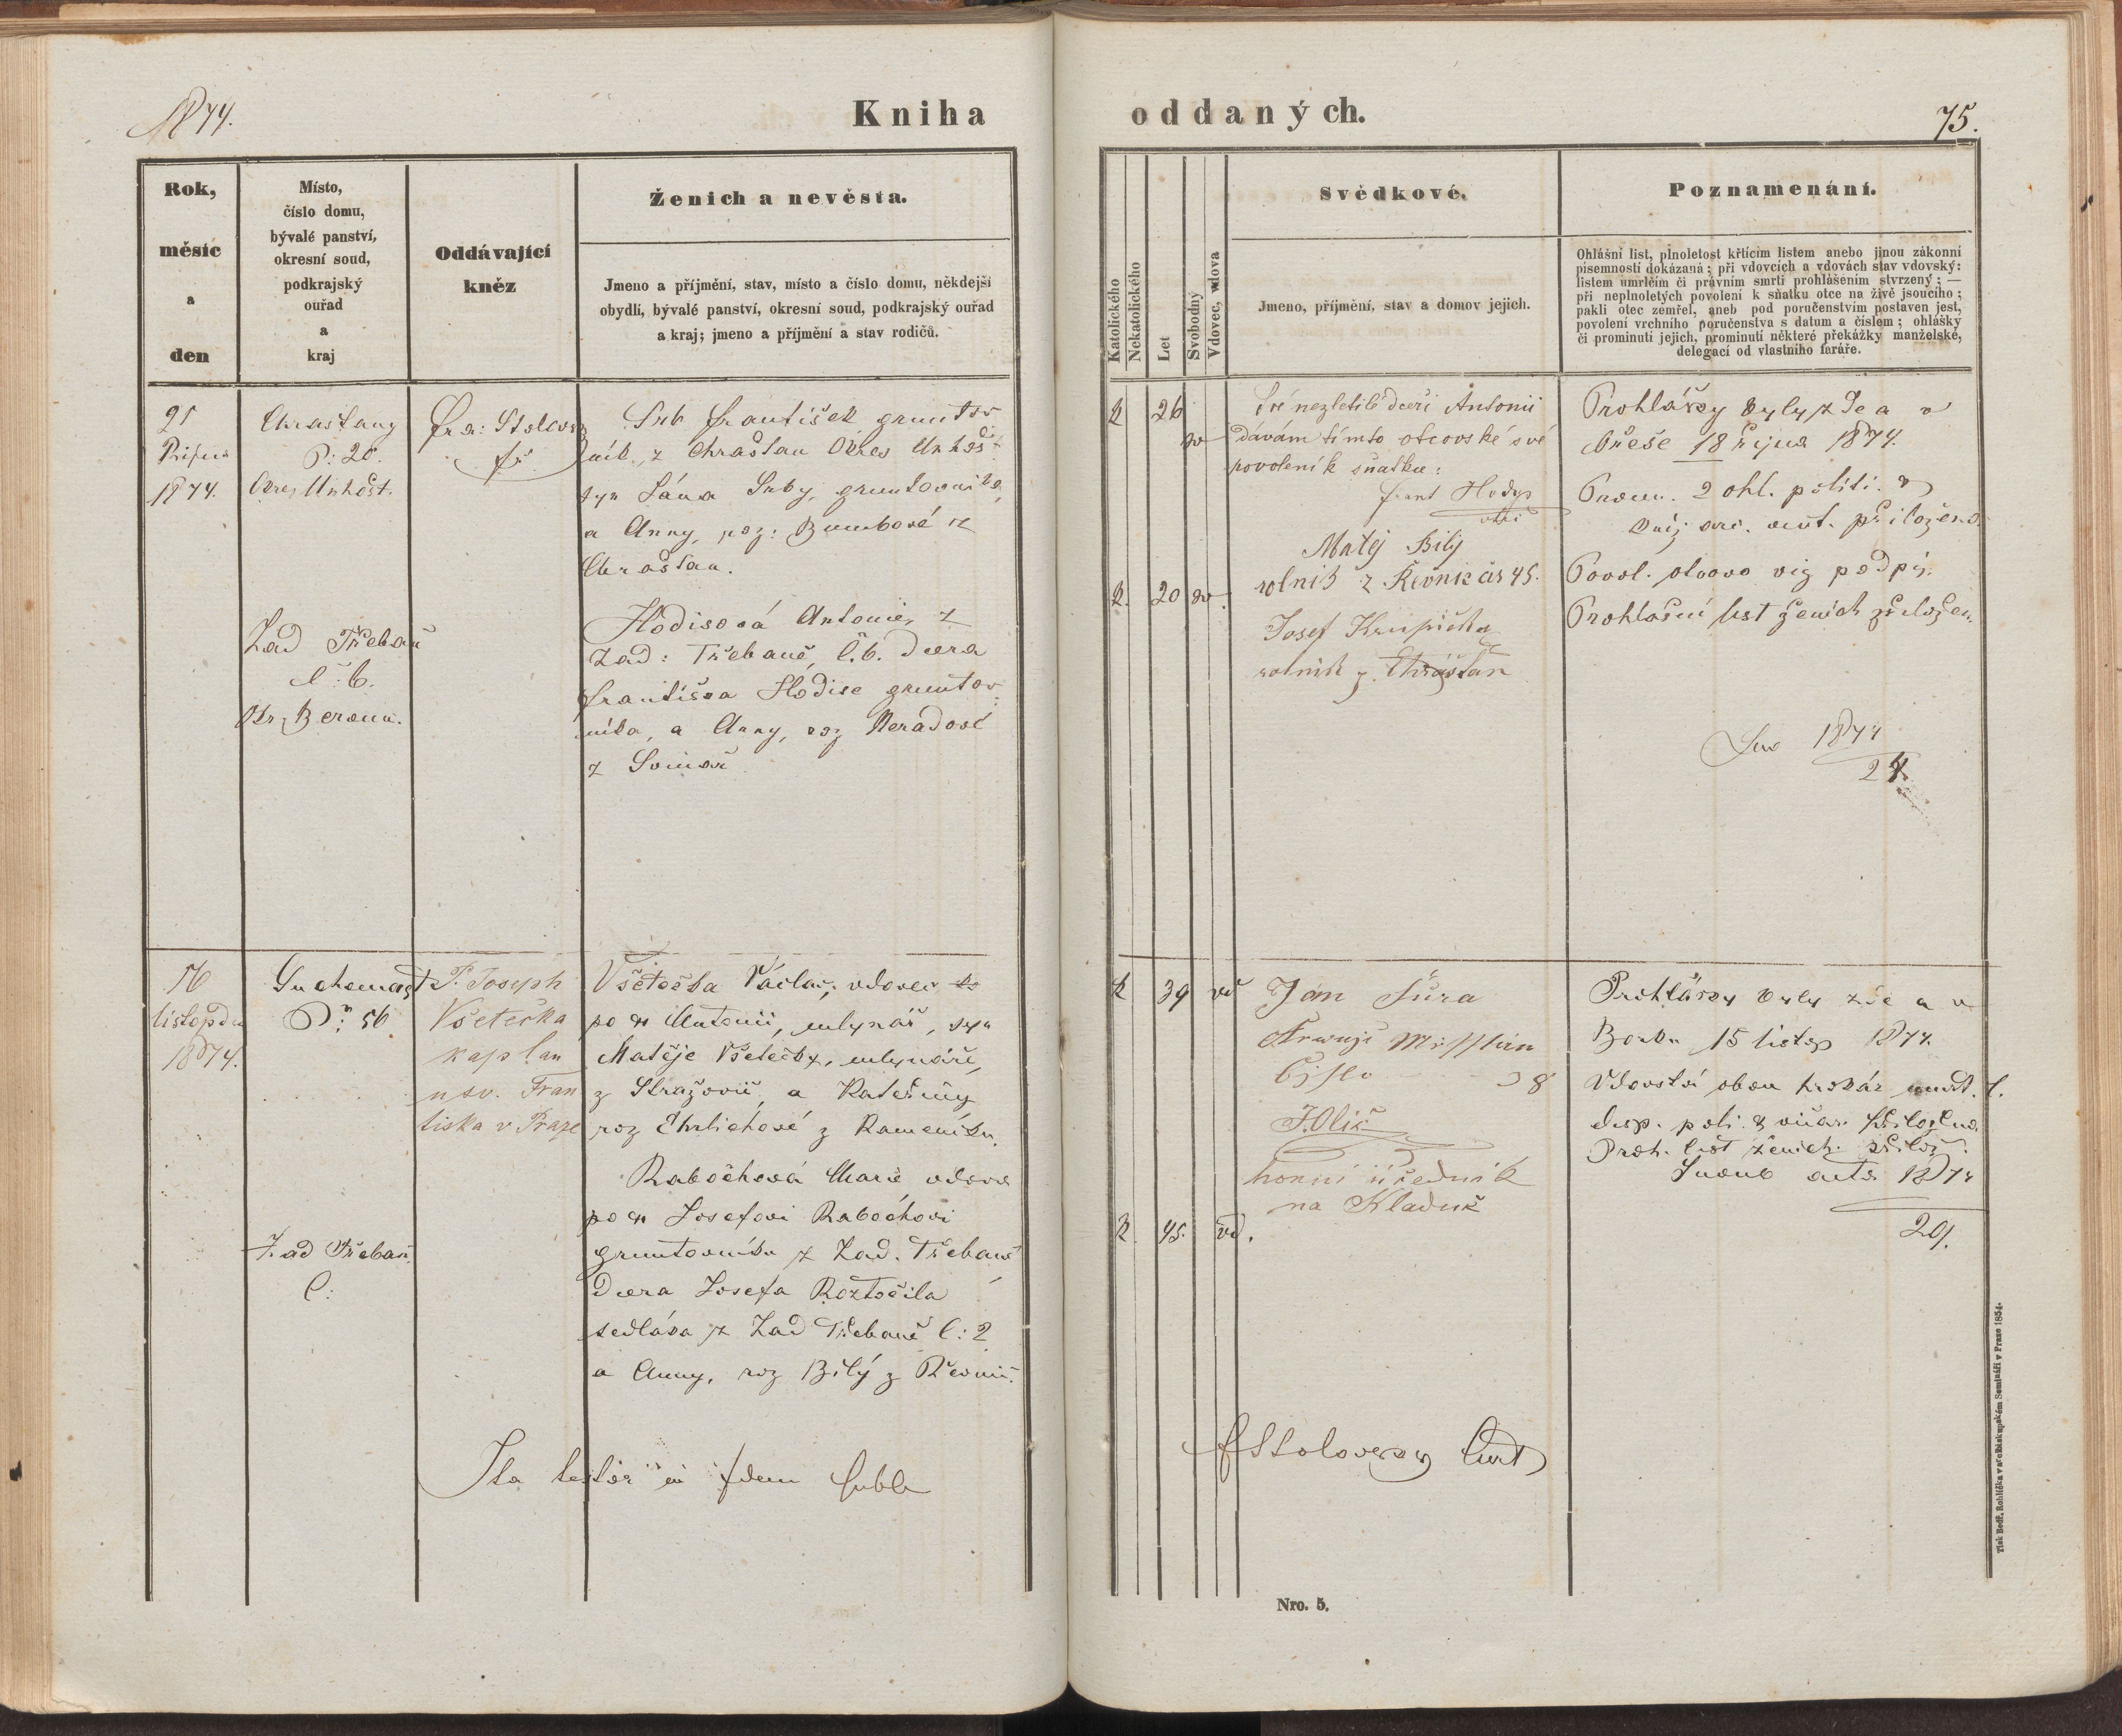 1874.
Kniha
oddaných.
75.
Rok,
měsíc
a
den
Místo,
číslo domu,
bývalé panství,
okresní soud,
podkrajský
ouřad
a
kraj
Oddávající
kněz
Ženich a nevěsta.
Jmeno a příjmění, stav, místo a číslo domu, někdejší
obydlí, bývalé panství, okresní soud, podkrajský ouřad
a kraj; jmeno a příjmění a stav rodičů.
Katolického
Nekatolického
Let
Svobodný
Vdovec, vdova
Svědkové.
Jmeno, příjmění, stav a domov jejich.
Poznamenání.
Ohlášní list, plnoletost křtícím listem anebo jinou zákonní
písemností dokázaná; při vdovcích a vdovách stav vdovský:
listem úmrlčím či právním smrti prohlášením stvrzený; —
při neplnoletých povolení k sňatku otce na živě jsoucího;
pakli otec zemřel, aneb pod poručenstvím postaven jest,
povolení vrchního poručenstva s datum a číslem; ohlášky
či prominutí jejich, prominutí některé překážky manželské,
delegací od vlastního faráře.
21
Října
1874.
Chrašťany
20.
Okres Unhošť.
Zad Třebaň
č: 6.
Okr. Beroun.
Srb František grunto
z Chrášťan Okres Unhošť
syn Jána Srby, gruntovníka
a Anny, roz:
Chrášťan.
Hodisová Antonie, z
Zad: Třebaně, č. 6. dcera
Františka Hodise gruntov
níka, a Anny, roz Neradové
z
K
26
sv
K.
20
sv.
Své nezletilé dceři Antonii
dávám tímto otcovské své
povolení k sňatku:
Frant Hodys
otec
Matěj Bílý
rolník z Řevnic čís 45.
Josef Krupička
rolník z Chrášťan
Prohlášky byly zde a v
18 října 1874.
2 ohl. politi.
přiloženo.
Povol. otcovo viz podpis.
Prohlášní list ženich přiložen.
1874
24
16
listopadu
1874.
Suchomast
56
Zad Třebaň.
Č:
P. Joseph
Všetečka
kaplan
u sv. Fran
tiska v Praze
Všetečka Václav, vdovec
po Antonii, mlynář, syn
Matěje Všetečky, mlynáře,
z Stražovic, a Kateřiny
roz Ehrlichové z Kameníku.
Rabochová Marie vdova
po Josefovi Rabochovi
gruntovníku z Zad. Třebaně
dcera Josefa Roztočila
sedláka z Zad Třebaně č: 2
a Anny, roz Bílý z Řevnic.
K
39
vd
K
45.
vd.
Jan Šůra
Číslo 38
J. Olič
horní úředník
na Kladně
Prohlášky byly zde a v
15 listop 1874.
Vdovství obou
přiloženo.
Proh. list ženich. přilož.
1874
29.
Nro. 5.
Tisk Bedř. Rohlíčka v arcibiskupském Semináři v Praze 1854.